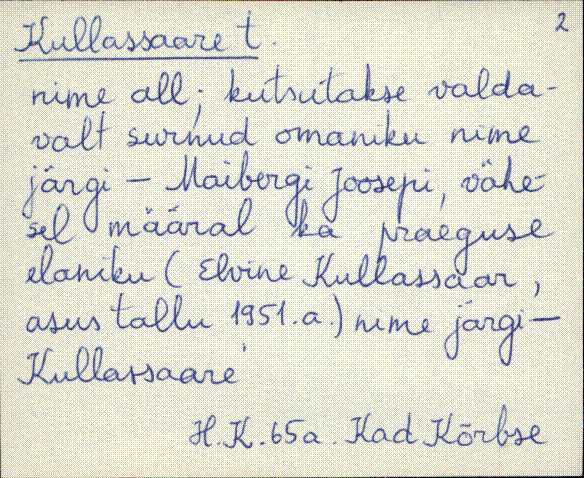 2
Kullassaare t.
nime all; kutsutakse valda-
valt surnud omaniku nime
järgi – Maibergi Joosepi, vähe-
sel määral ka praeguse
elaniku (Elvine Kullassaar,
asus tallu 1951.a.) nime järgi –
Kullassaare
H.K. 65a. Kad Kõrbse